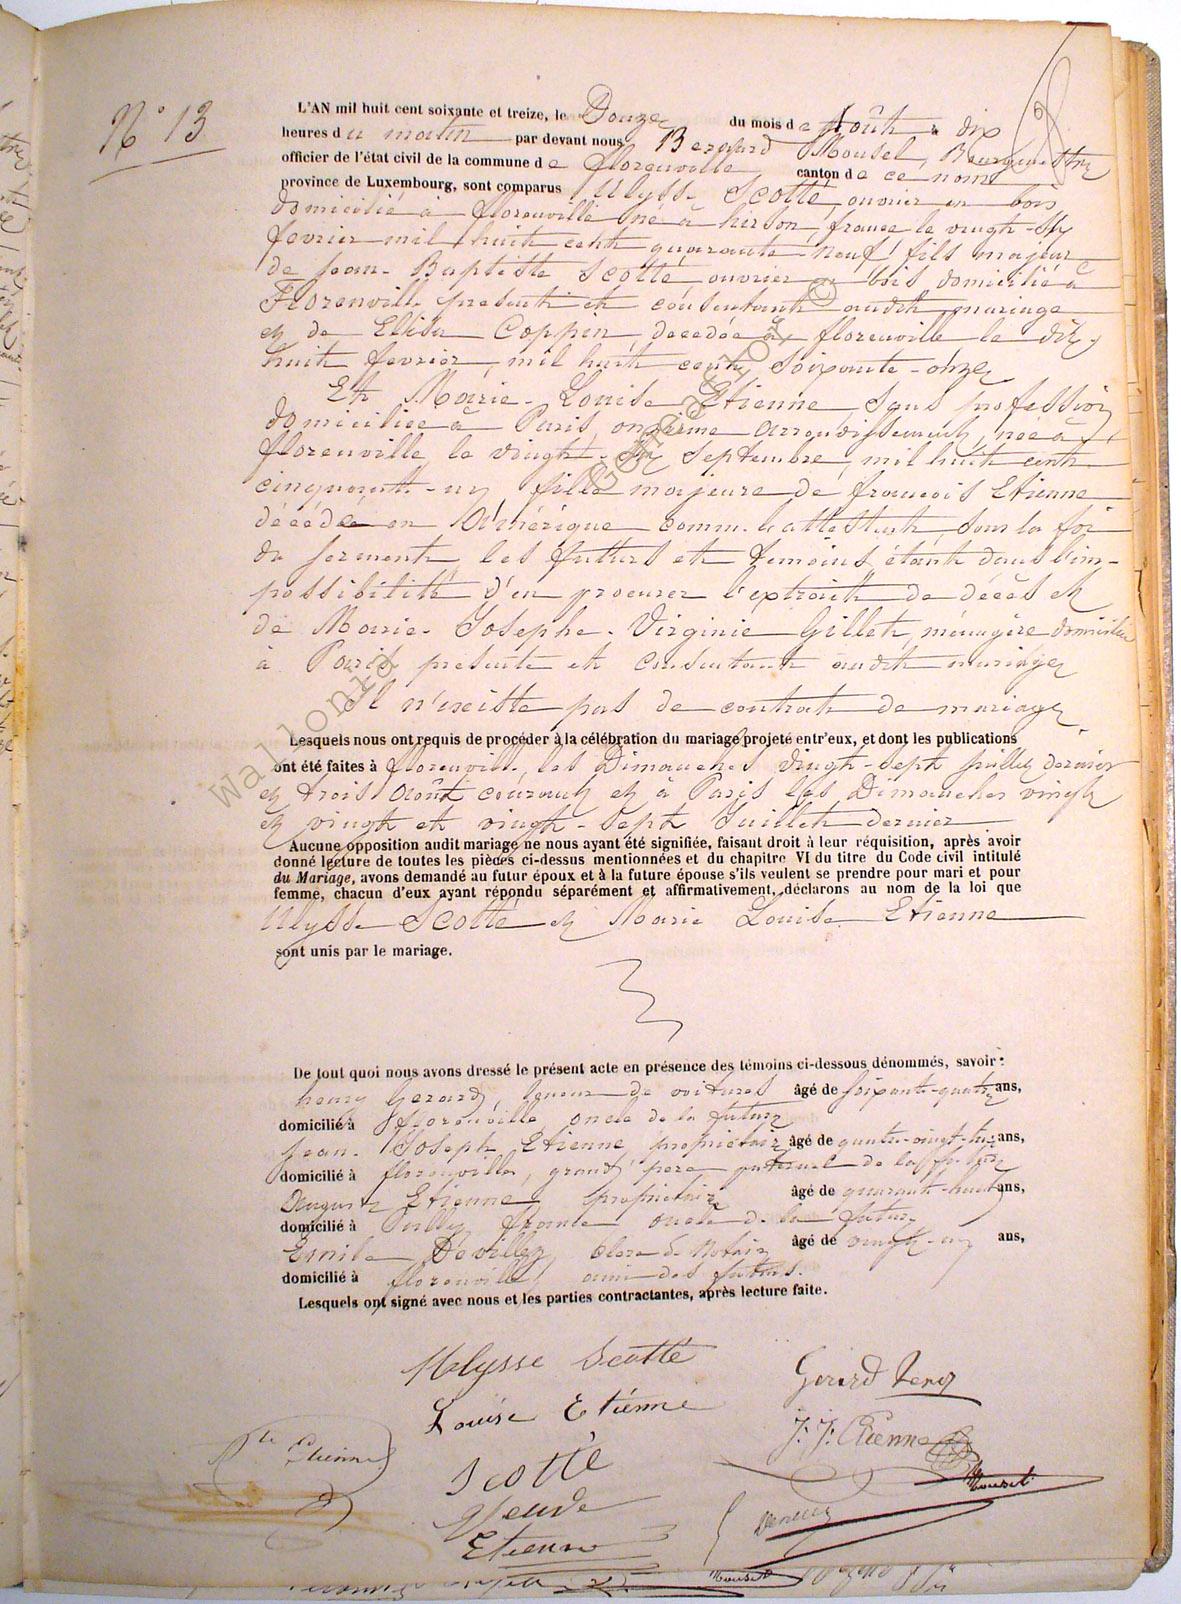 N° 13
L'AN mil huit cent soixante et treize, le Douze du mois de Août à dix
heures du matin par devant nous Bernard Mousel, Bourgmestre
officier de l'état civil de la commune de florenville canton de ce nom
province de Luxembourg, sont comparus Ulysse Scotté, ouvrier en bois
domicilié à florenville né à hirson, france le vingt-six
fevrier mil huit cent quarante neuf, fils majeur
de Jean-Baptiste Scotté, ouvrier en bois domicilié à
Florenville présent et consentant audit mariage
et de Elisa Coppin, decedée à florenville le dix
huit fevrier, mil huit cent soixante-onze
Et Marie-Louise Etienne, sans profession
domiciliée à Paris, onzième arrondissement, née à
florenville le vingt-six septembre, mil huit cent
cinquante-un, fille majeure de françois Etienne
décédé en Amérique comme l'attestent, sous la foi
du serment, les futurs et temoins étant dans l'im-
possibilité d'en procurer l'extrait de décès et
de Marie-Josephe-Virginie Gillet, ménagère domiciliée
à Paris présente et consentant audit mariage
Il n'existe pas de contrat de mariage
Lesquels nous ont requis de procéder à la célébration du mariage projeté entr'eux, et dont les publications
ont été faites à florenville, les Dimanches vingt-sept juillet dernier
et trois Août courant et à Paris les Dimanches vingt
et vingt et vingt-sept Juillet dernier
Aucune opposition audit mariage ne nous ayant été signifiée, faisant droit à leur réquisition, après avoir
donné lecture de toutes les pièces ci-dessus mentionnées et du chapitre VI du titre du Code civil intitulé
du Mariage, avons demandé au futur époux et à la future épouse s'ils veulent se prendre pour mari et pour
femme, chacun d'eux ayant répondu séparément et affirmativement, déclarons au nom de la loi que
Ulysse Scotté et Marie Louise Etienne
sont unis par le mariage.
De tout quoi nous avons dressé le présent acte en présence des témoins ci-dessous dénommés, savoir :
henry Gerard, loueur de voitures âgé de soixante-quatre ans,
domicilié à florenville oncle de la future
Jean-Joseph Etienne propriétaire âgé de quatre-vingt-trois ans,
domicilié à florenville, grand père paternel de la future
Auguste Etienne, propriétaire âgé de quarante-huit ans,
domicilié à france oncle de la future
Emile Devillez, Clerc de Notaire âgé de vingt-un ans,
domicilié à florenville, ami des futurs.
Lesquels ont signé avec nous et les parties contractantes, après lecture faite.
Ulysse Scotté
Gerard henry
Louise Etienne
J. J. Etienne
Etienne
Scotté
Mousel
Etienne
Mousel
wallonia Genealogy ©